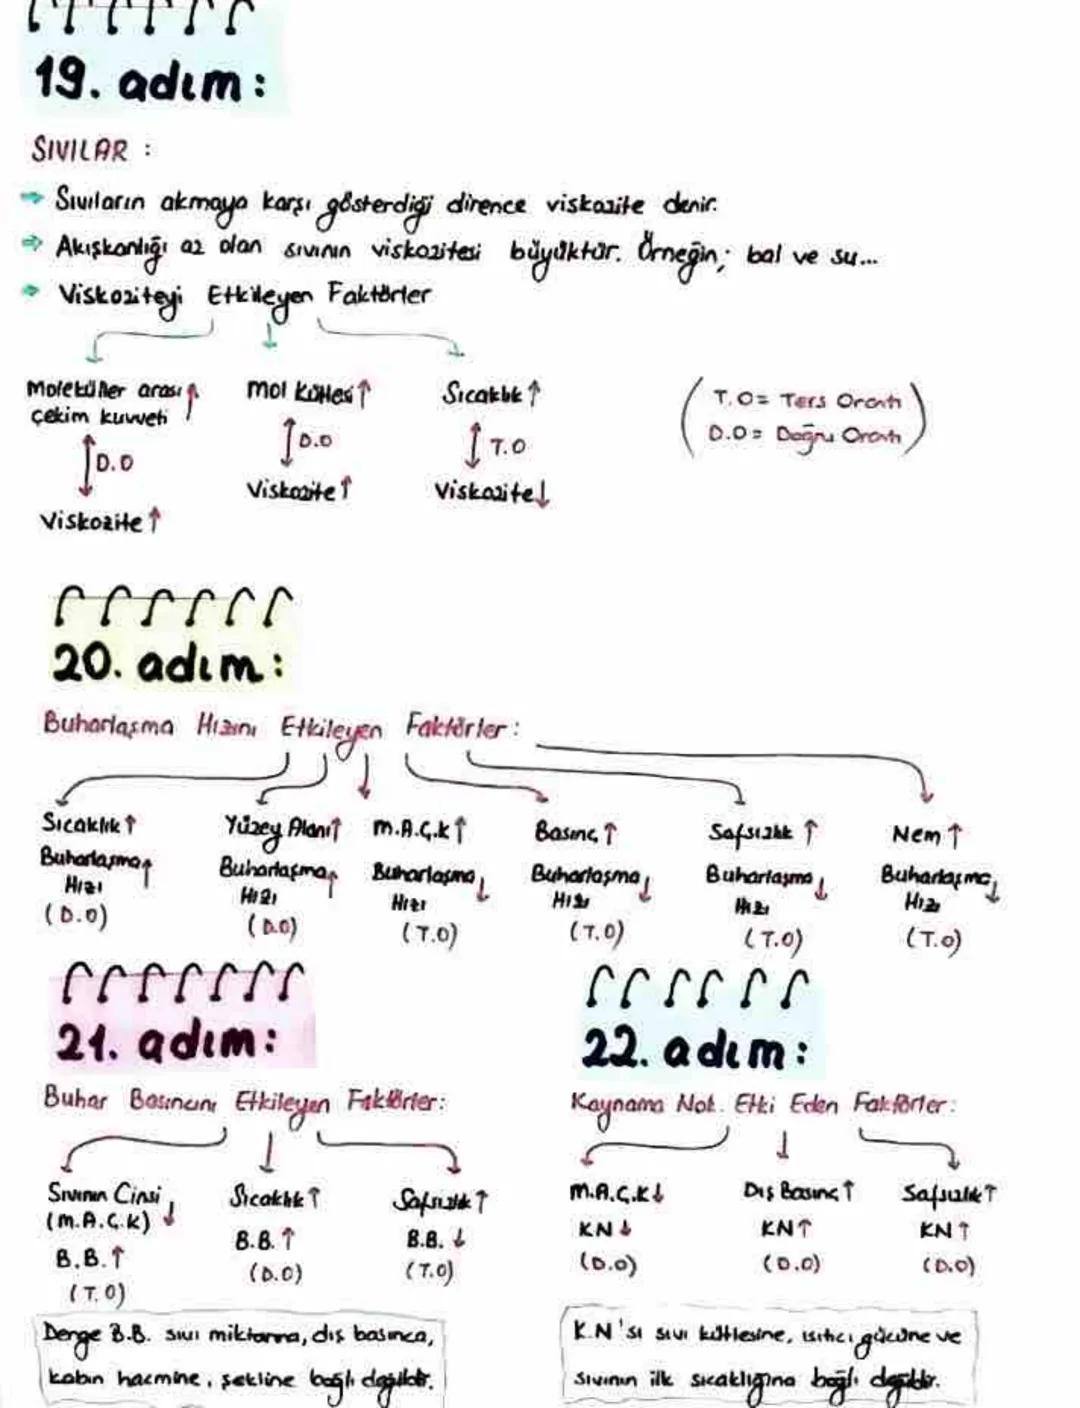 19. adım:
SIVILAR :
Sıvıların akmaya karşı gösterdiği dirence viskozite denir.
Akışkanlığı az olan sıvının viskozitesi büyüktür. Örneğin; bal ve su...
Viskoziteyi Etkileyen Faktörler
Moleküller arası ↑ çekim kuvveti
D.O
Viskozite ↑
Mol Kütlesi ↑
D.O
Viskozite ↑
Sıcaklık ↑
T.O
Viskozite ↓
(T.O= Ters Orantı
D.O= Doğru Orantı)
20. adım:
Buharlaşma Hızını Etkileyen Faktörler :
Sıcaklık ↑
Buharlaşma ↑
Hızı
(D.O)
Yüzey Alanı ↑
Buharlaşma ↑
Hızı
(D.O)
M.A.Ç.K ↑
Buharlaşma ↓
Hızı
(T.O)
Basınç ↑
Buharlaşma ↓
Hızı
(T.O)
Safsızlık ↑
Buharlaşma ↓
Hızı
(T.O)
Nem ↑
Buharlaşma ↓
Hızı
(T.O)
21. adım:
Buhar Basıncını Etkileyen Faktörler:
Sıvının Cinsi
(M.A.Ç.K) ↓
B.B. ↑
(T.O)
Sıcaklık ↑
B.B. ↑
(D.O)
Safsızlık ↑
B.B. ↓
(T.O)
Denge B.B. sıvı miktarına, dış basınca,
kabın hacmine, şekline bağlı değildir.
22. adım:
Kaynama Nok. Etki Eden Faktörler :
M.A.Ç.K ↓
KN ↓
(D.O)
Dış Basınç ↑
KN ↑
(D.O)
Safsızlık ↑
KN ↑
(D.O)
K.N'sı sıvı kütlesine, ısıtıcı gücüne ve
sıvının ilk sıcaklığına bağlı değildir.